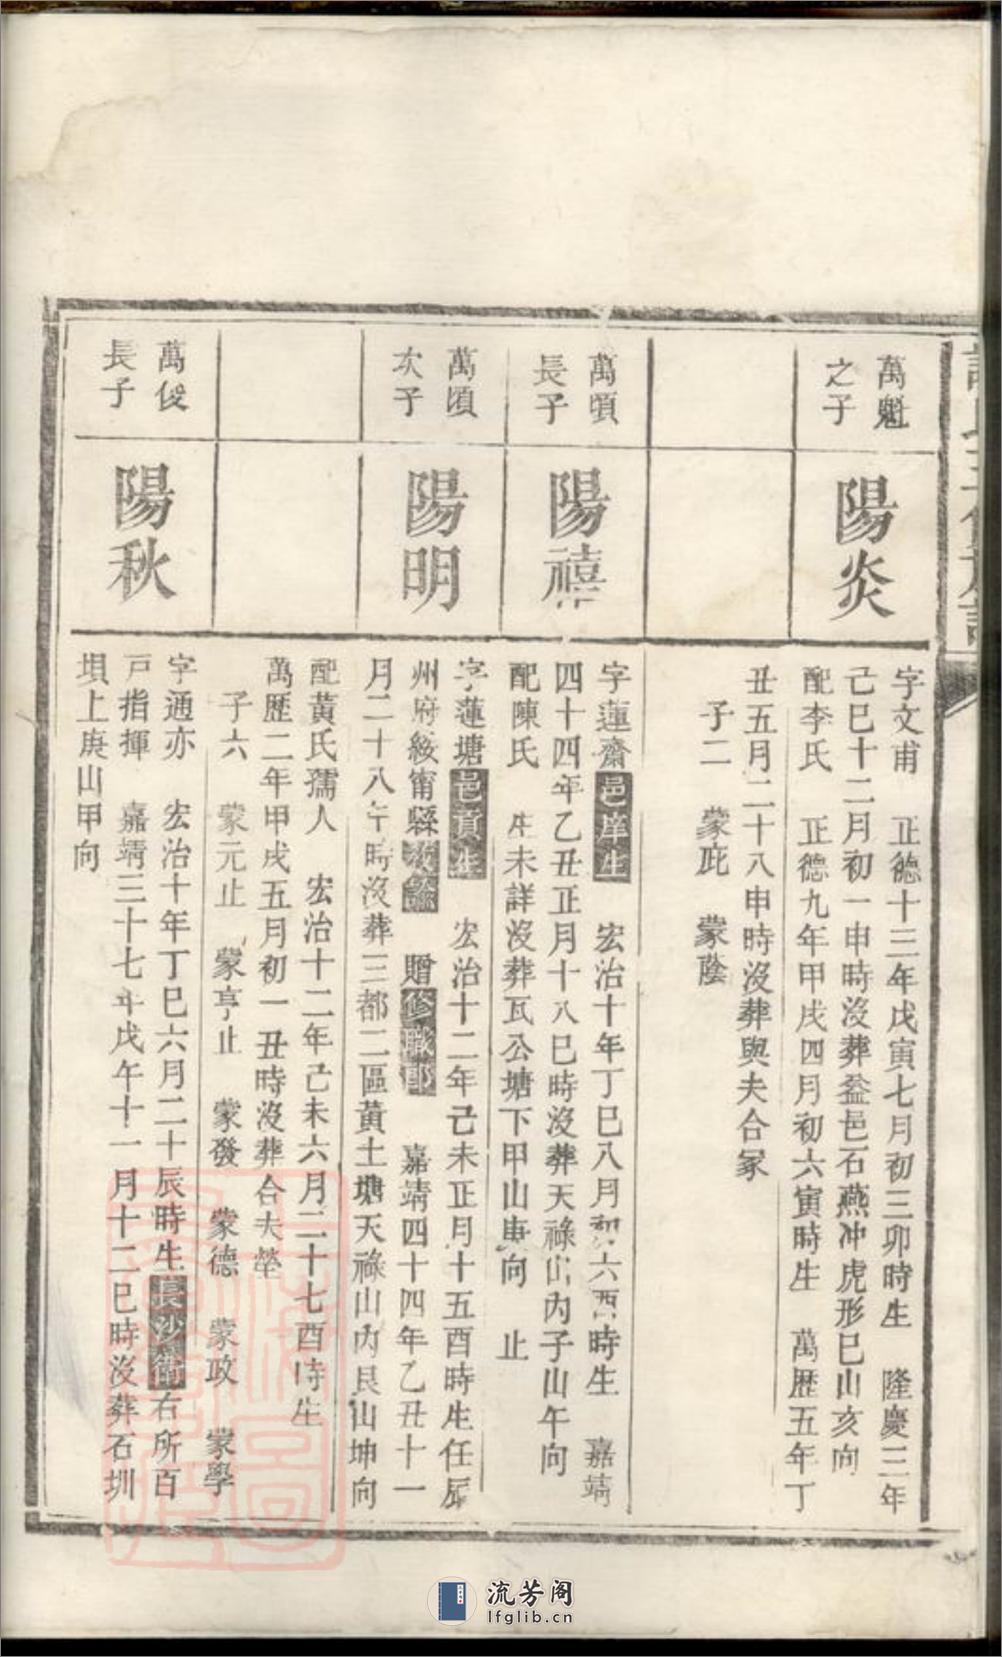 萬魁
之子
陽炎
字文甫 正德十三年戊寅七月初三卯時生 隆慶三年
己巳十二月初一申時沒葬益邑石燕冲虎形巳山亥向
配李氏 正德九年甲戌四月初六寅時生 萬歷五年丁
丑五月二十八申時沒葬與夫合冢
子二 蒙庇 蒙蔭
萬頃
長子
陽禧
字蓮齋邑庠生 宏治十年丁巳八月初六酉時生 嘉靖
四十四年乙丑正月十八巳時沒葬天祿山內子山午向
配陳氏 生未詳沒葬瓦公塘下甲山庚向 止
萬頃
次子
陽明
字蓮塘邑貢生 宏治十二年己未正月十五酉時生任
州府綏甯縣教諭 贈修職郎 嘉靖四十四年乙丑十一
月二十八午時沒葬三都二區黃土塘天祿山內艮山坤向
配黃氏孺人 宏治十二年己未六月二十七酉時生
萬歷二年甲戌五月初一丑時沒葬合夫塋
子六 蒙元止 蒙亨止 蒙發 蒙德 蒙政 蒙學
萬俊
長子
陽秋
字通亦 宏治十年丁巳六月二十辰時生長沙衛右所百
戶指揮 嘉靖三十七年戊午十一月十二巳時沒葬石圳
垻上庚山甲向
流芳阁
lfglib.cn